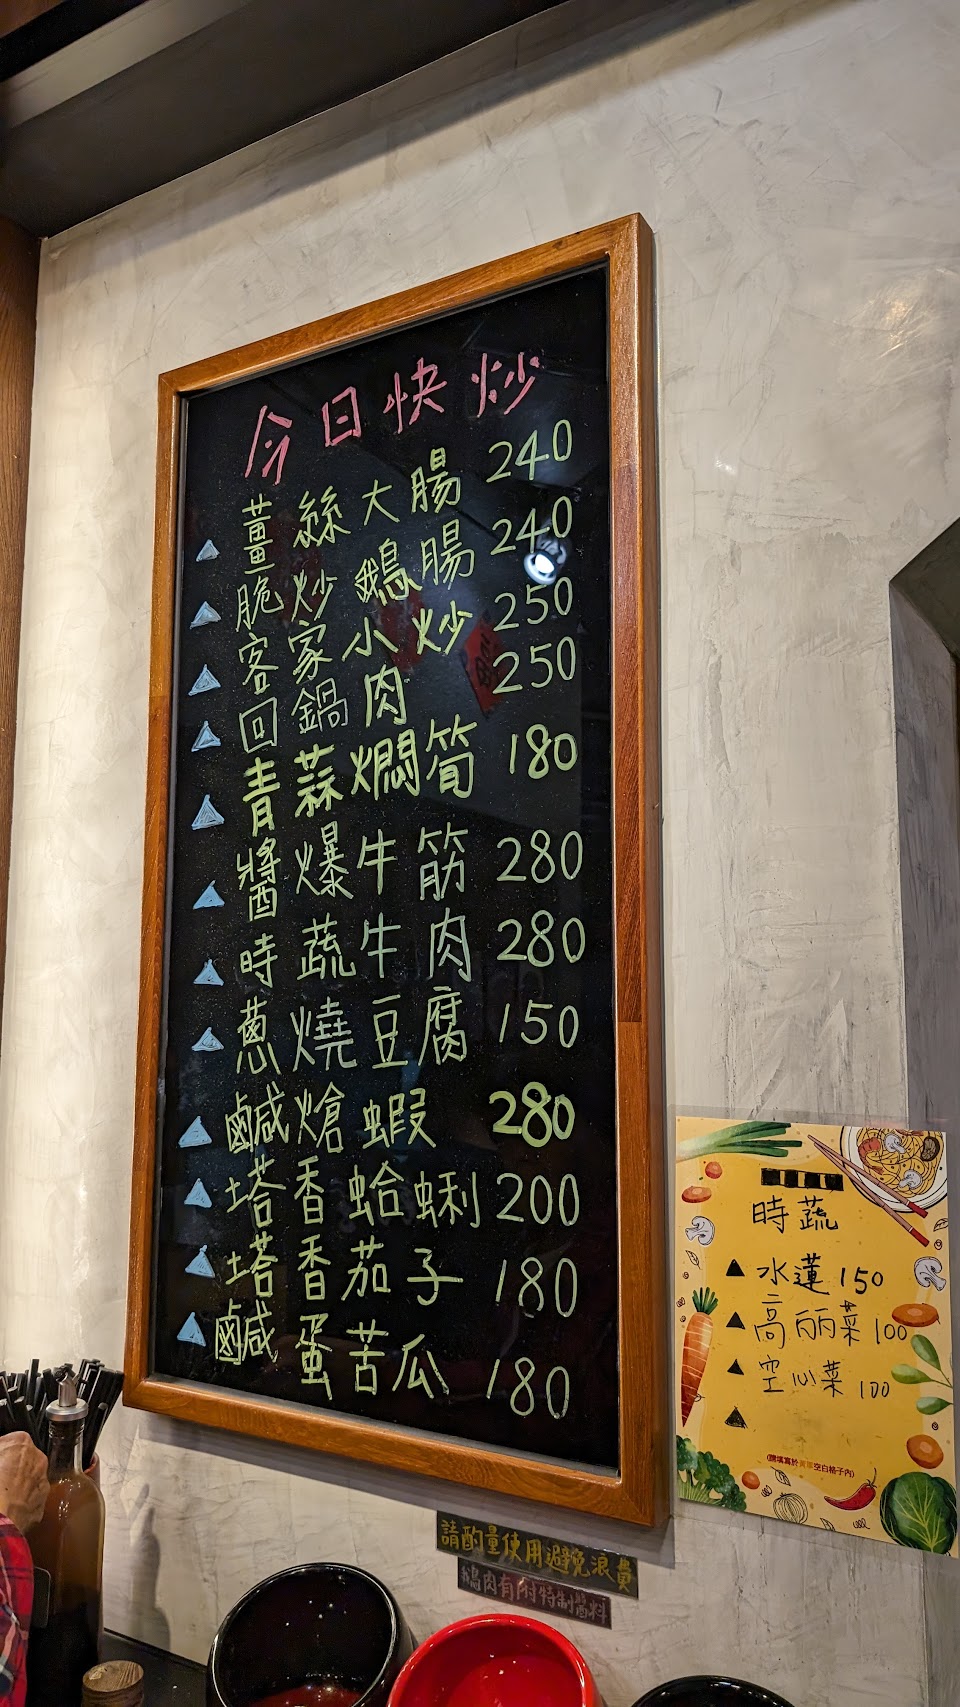 今日快炒
薑絲大腸 240
脆炒鵝腸 240
客家小炒 250
回鍋肉 250
青蒜燜筍 180
醬爆牛筋 280
時蔬牛肉 280
蔥燒豆腐 150
鹹熗蝦 280
塔香蛤蜊 200
塔香茄子 180
鹹蛋苦瓜 180
時蔬
水蓮 150
高丽菜 100
空心菜 100
(請填寫於黃單空白格子內)
請酌量使用避免浪費
鵝肉有附特制醬料